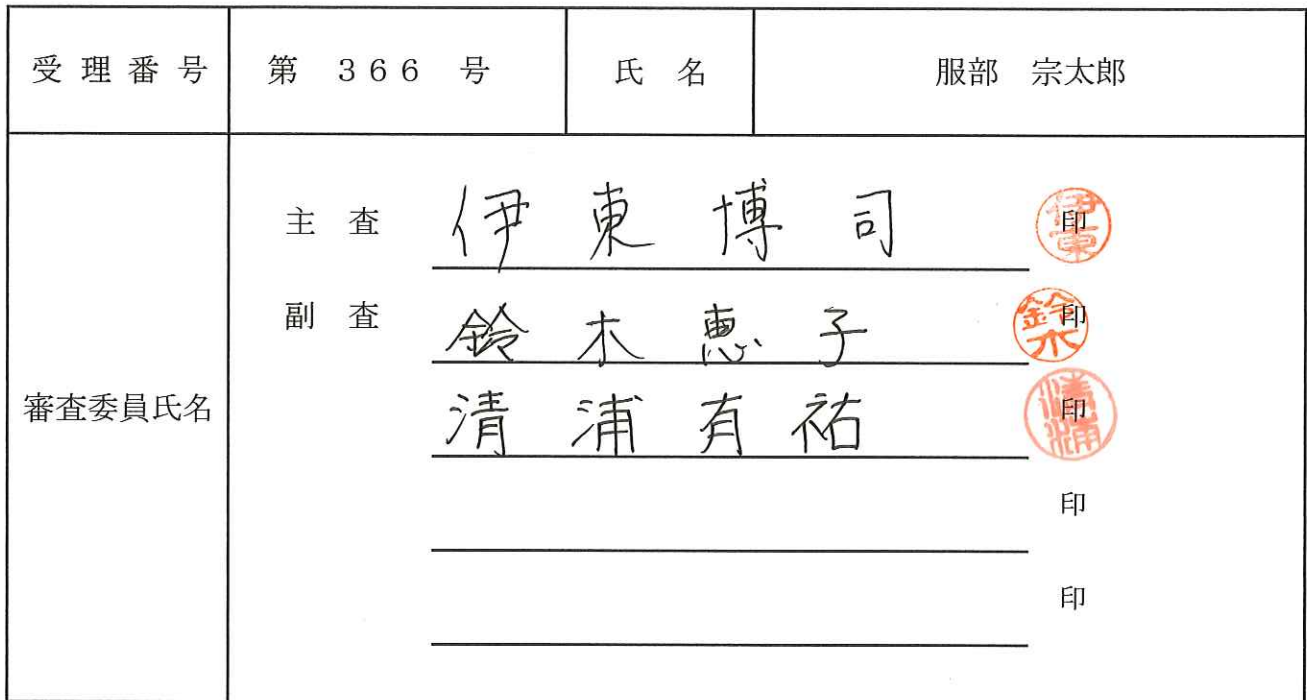 受理番号 第 366 号 氏名 服部 宗太郎
審査委員氏名
主査 伊東博司 印 伊東
副査 鈴木恵子 印 鈴木
清浦有祐 印 清浦
印
印